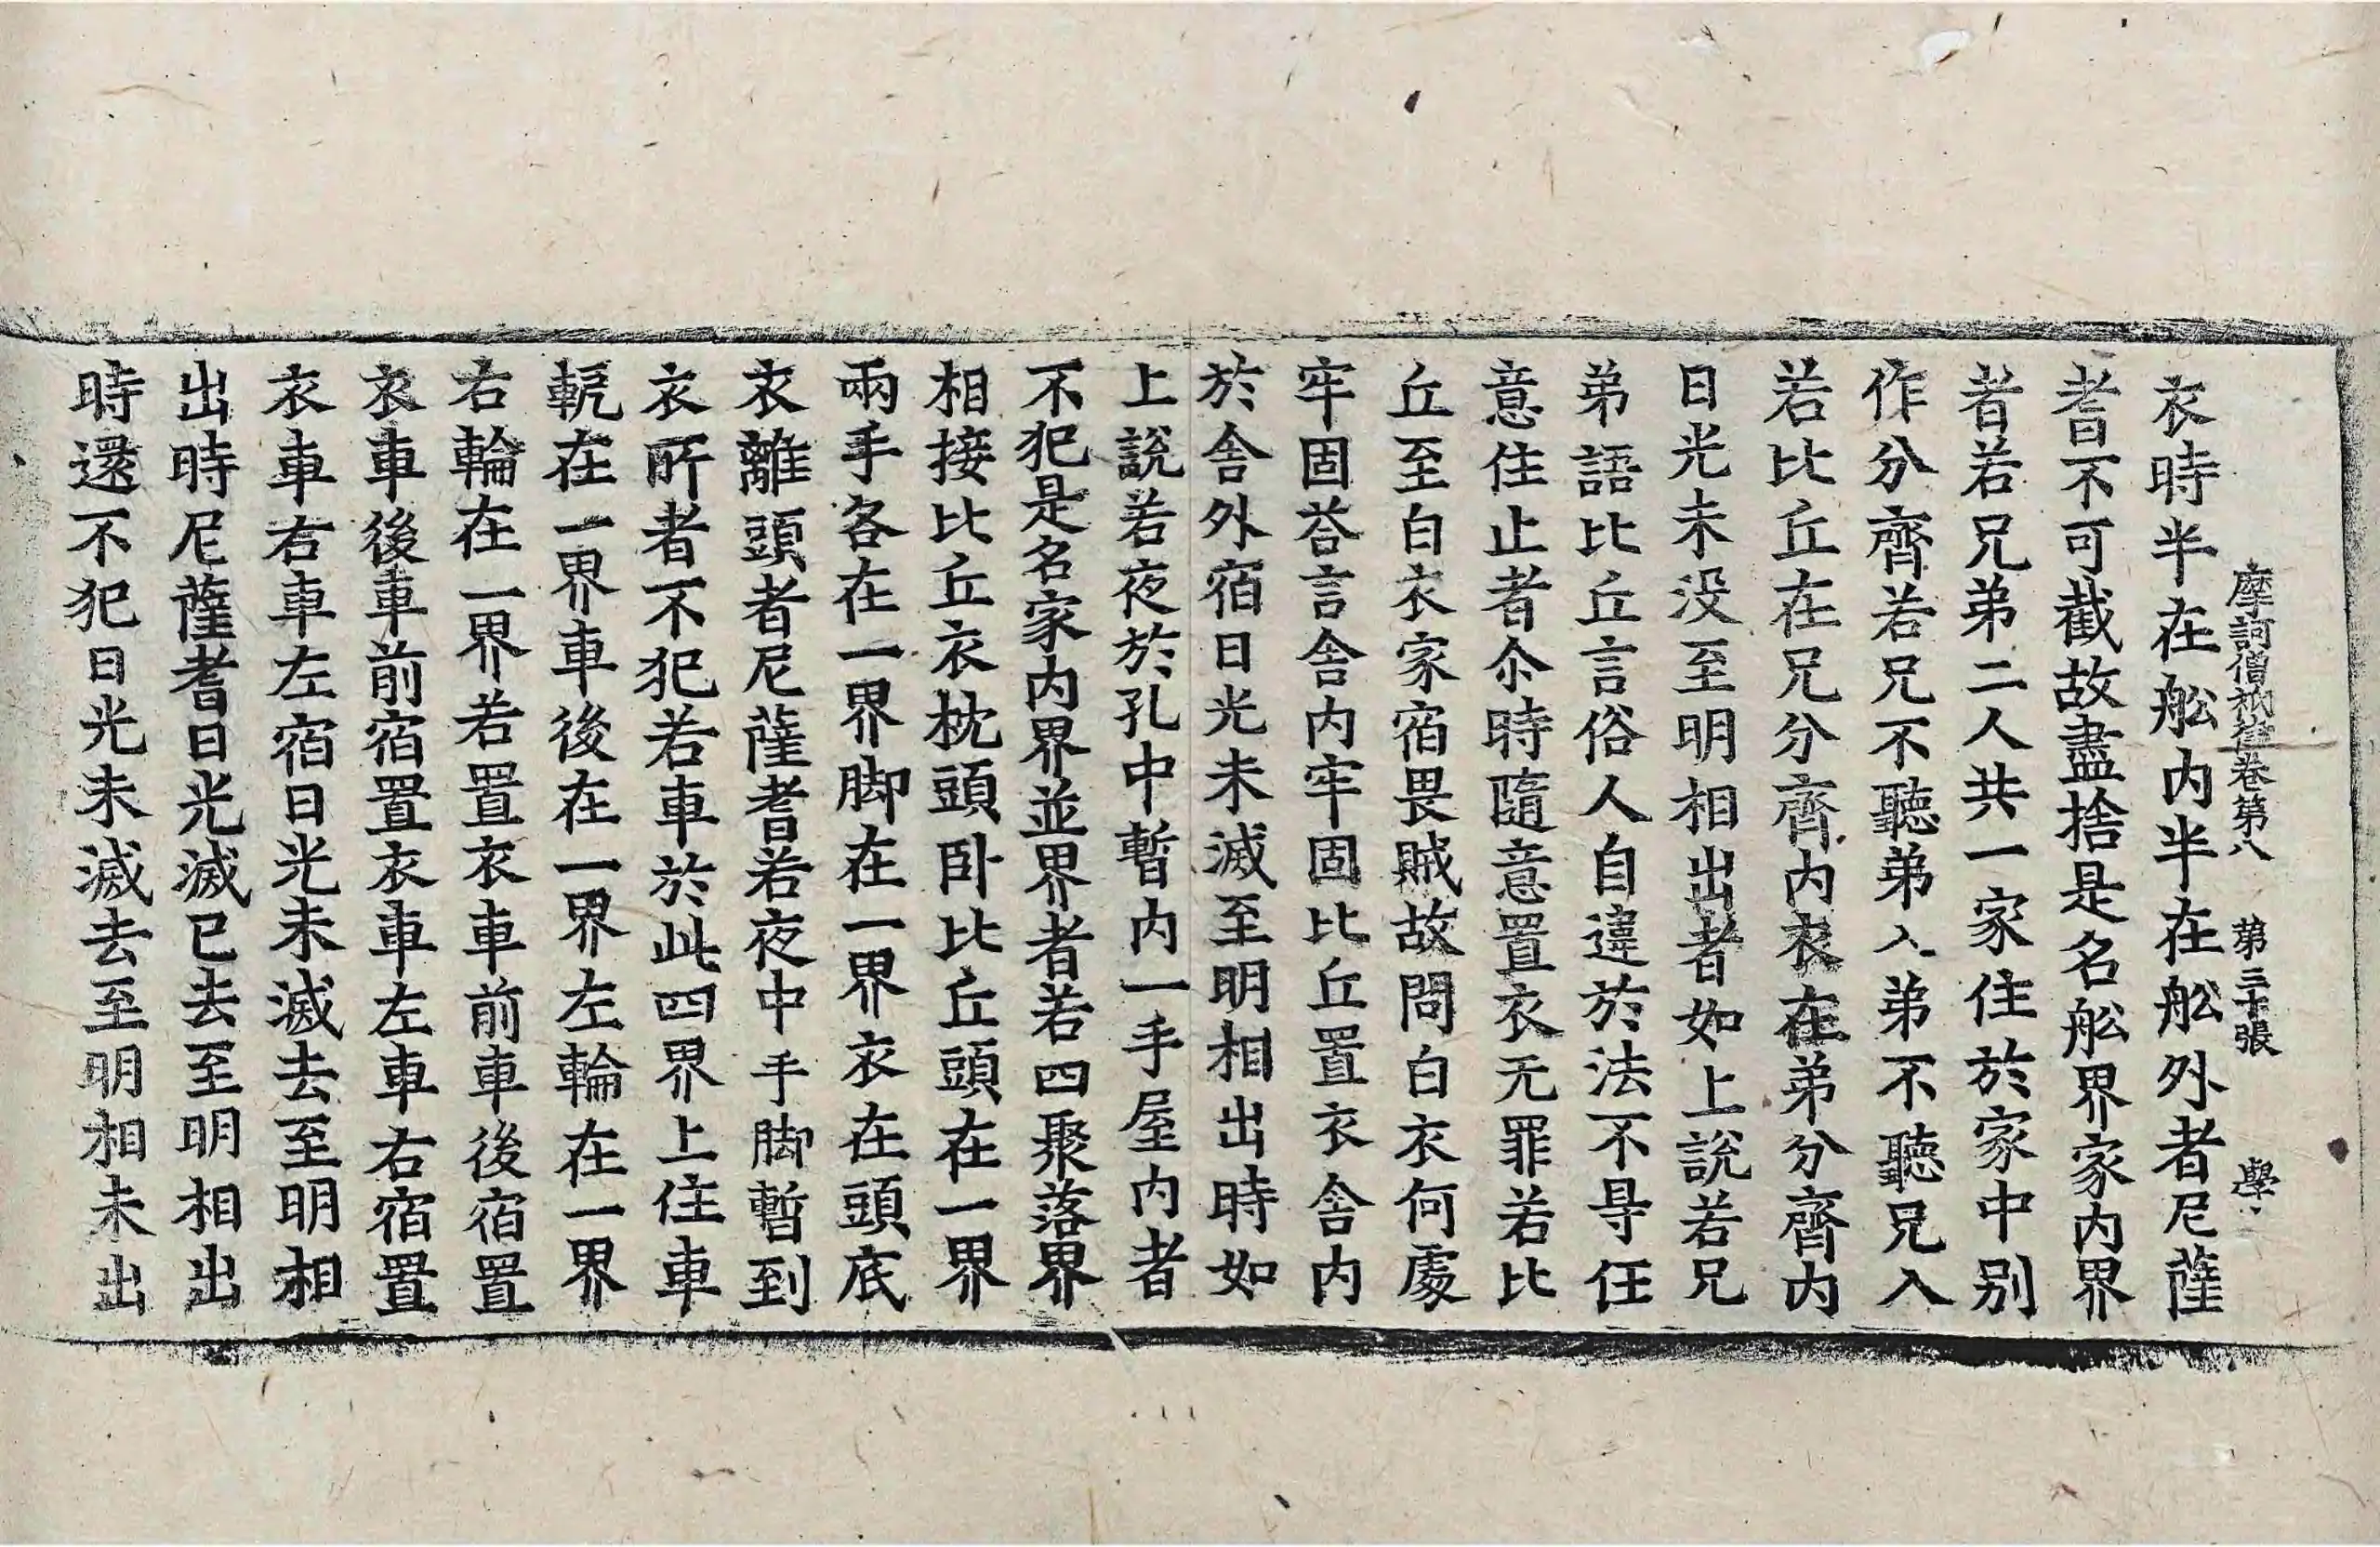 摩訶僧祇律卷第八 第三十張 學
衣時半在舩内半在舩外者尼薩
耆不可截故盡捨是名舩界家内界
者若兄弟二人共一家住於家中别
作分齊若兄不聽弟入弟不聽兄入
若比丘在兄分齊内衣在弟分齊内
日光未没至明相出者如上說若兄
弟語比丘言俗人自違於法不㝵任
意住止者尒時隨意置衣无罪若比
丘至白衣家宿畏賊故問白衣何處
牢固荅言舍内牢固比丘置衣舍内
於舍外宿日光未滅至明相出時如
上說若夜於孔中暫内一手屋内者
不犯是名家内界並界者若四聚落界
相接比丘衣枕頭卧比丘頭在一界
兩手各在一界脚在一界衣在頭底
衣離頭者尼薩耆若夜中手脚暫到
衣所者不犯若車於此四界上住車
軛在一界車後在一界左輪在一界
右輪在一界若置衣車前車後宿置
衣車後車前宿置衣車左車右宿置
衣車右車左宿日光未滅去至明相
出時尼薩耆日光滅已去至明相出
時還不犯日光未滅去至明相未出